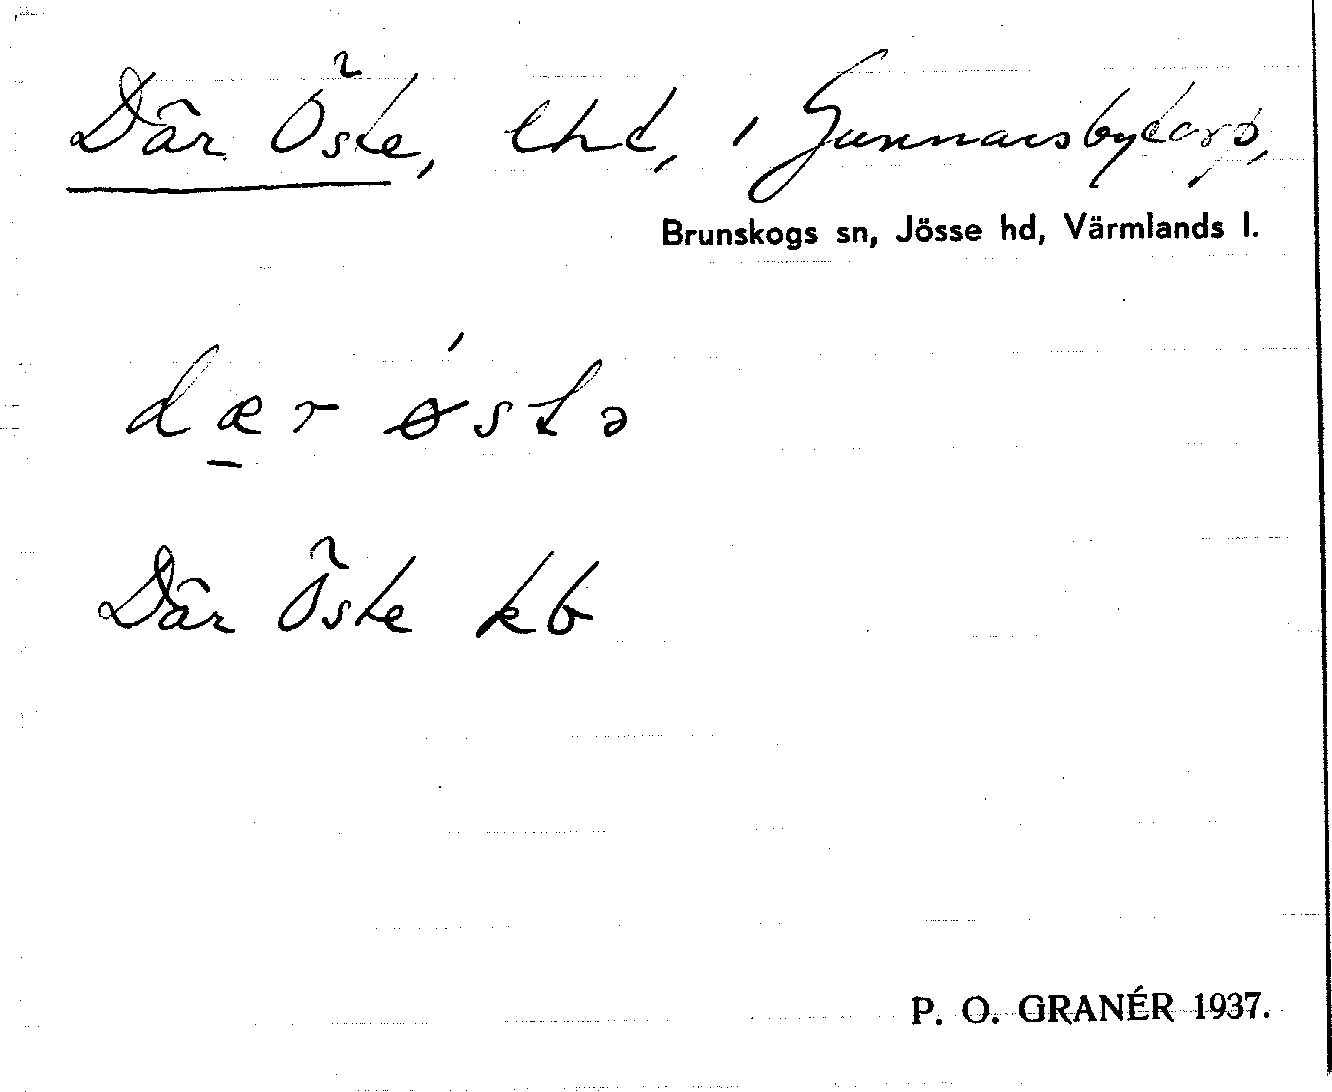 Där Öste, lht, i Gunnarsbytorp,
Brunskogs sn, Jösse hd, Värmlands l.
dær østə
Där Öste kb
P. O. GRANÉR 1937.